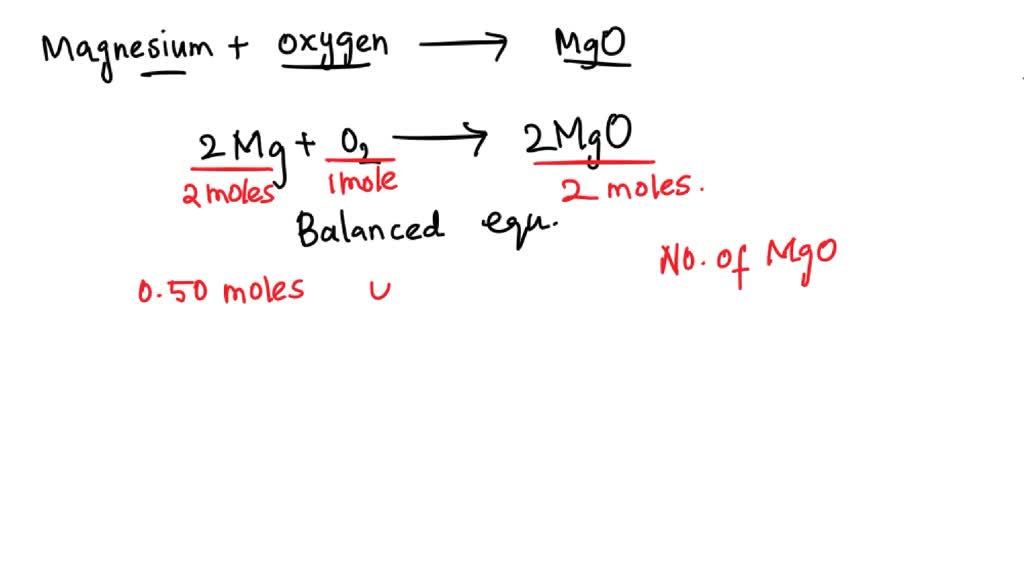 Magnesium + oxygen → MgO
2Mg + O₂ → 2MgO
2 moles 1mole 2 moles.
Balanced equ.
No. of MgO
0.50 moles U